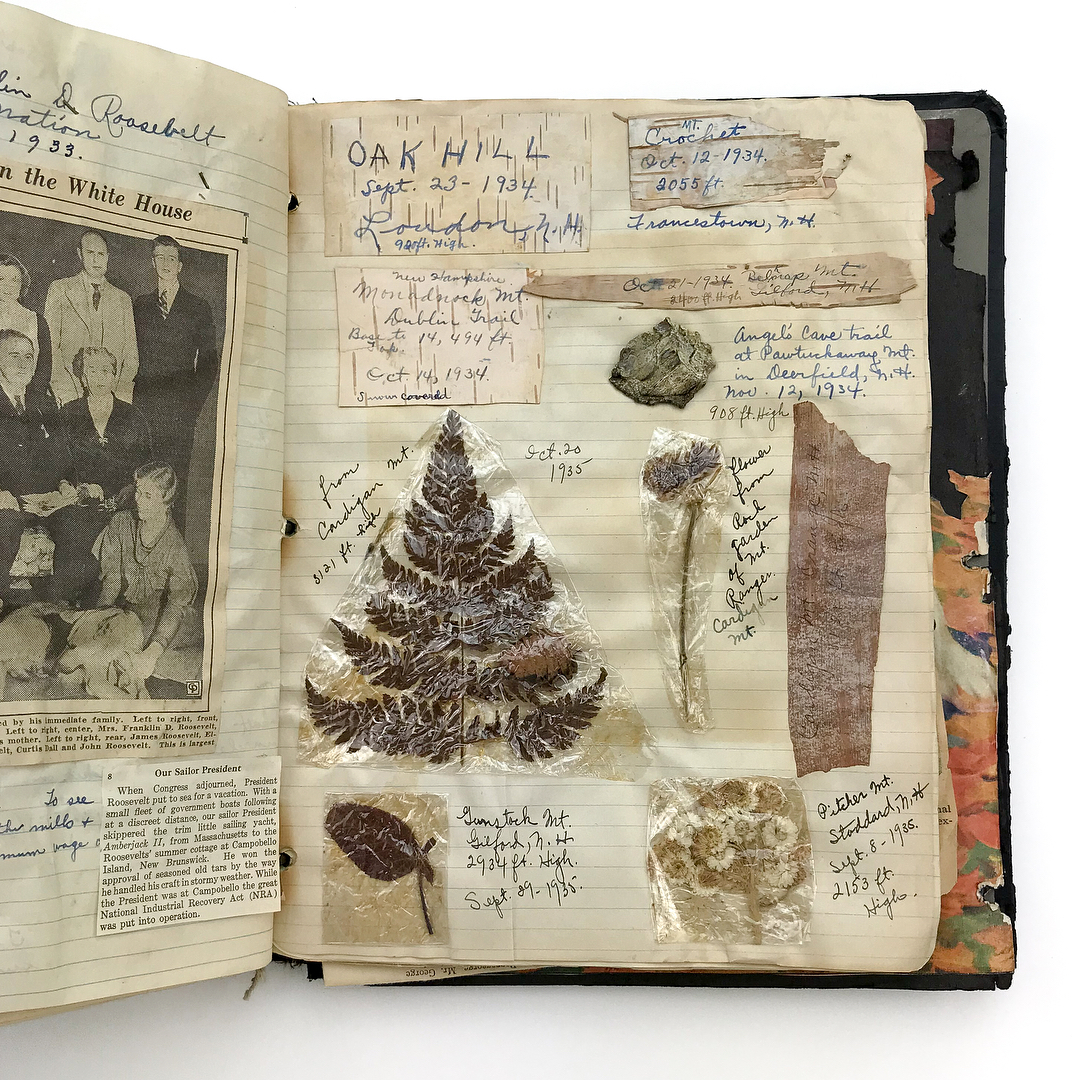 lin D. Roosevelt
nation
1933.
n the White House
ed by his immediate family. Left to right, front,
Left to right, center, Mrs. Franklin D. Roosevelt,
s mother. Left to right, rear, James Roosevelt, El-
elt, Curtis Dall and John Roosevelt. This is largest
To see
mills +
mum wage
8
Our Sailor President
When Congress adjourned, President
Roosevelt put to sea for a vacation. With a
small fleet of government boats following
at a discreet distance, our sailor President
skippered the trim little sailing yacht,
Amberjack II, from Massachusetts to the
Roosevelts' summer cottage at Campobello
Island, New Brunswick. He won the
approval of seasoned old tars by the way
he handled his craft in stormy weather. While
the President was at Campobello the great
National Industrial Recovery Act (NRA)
was put into operation.
OAK HILL
Sept. 23-1934.
Loudon, N.H.
920ft. High.
Mt.
Crochet
Oct. 12-1934.
2055 ft.
Francestown, N.H.
New Hampshire
Monadnock Mt.
Dublin Trail
Base to 14, 494 ft.
Top.
Oct. 14, 1934.
Snow covered
Oct. 21-1934. Belknap Mt.
2400 ft. High Gilford, N.H
Angel's Cave trail
at Pawtuckaway Mt.
in Deerfield, N.H.
Nov. 12, 1934.
908 ft. High
from Mt.
Cardigan
3121 ft. high
Oct. 20
1935
flower
from
Rock
Garden
of Mt.
Ranger.
Cardigan
Mt.
Gunstock Mt.
Gilford, N.H.
2934 ft. High.
Sept. 29-1935.
Pitcher Mt.
Stoddard, N.H
Sept. 8-1935.
2153 ft.
High.
Mr. George